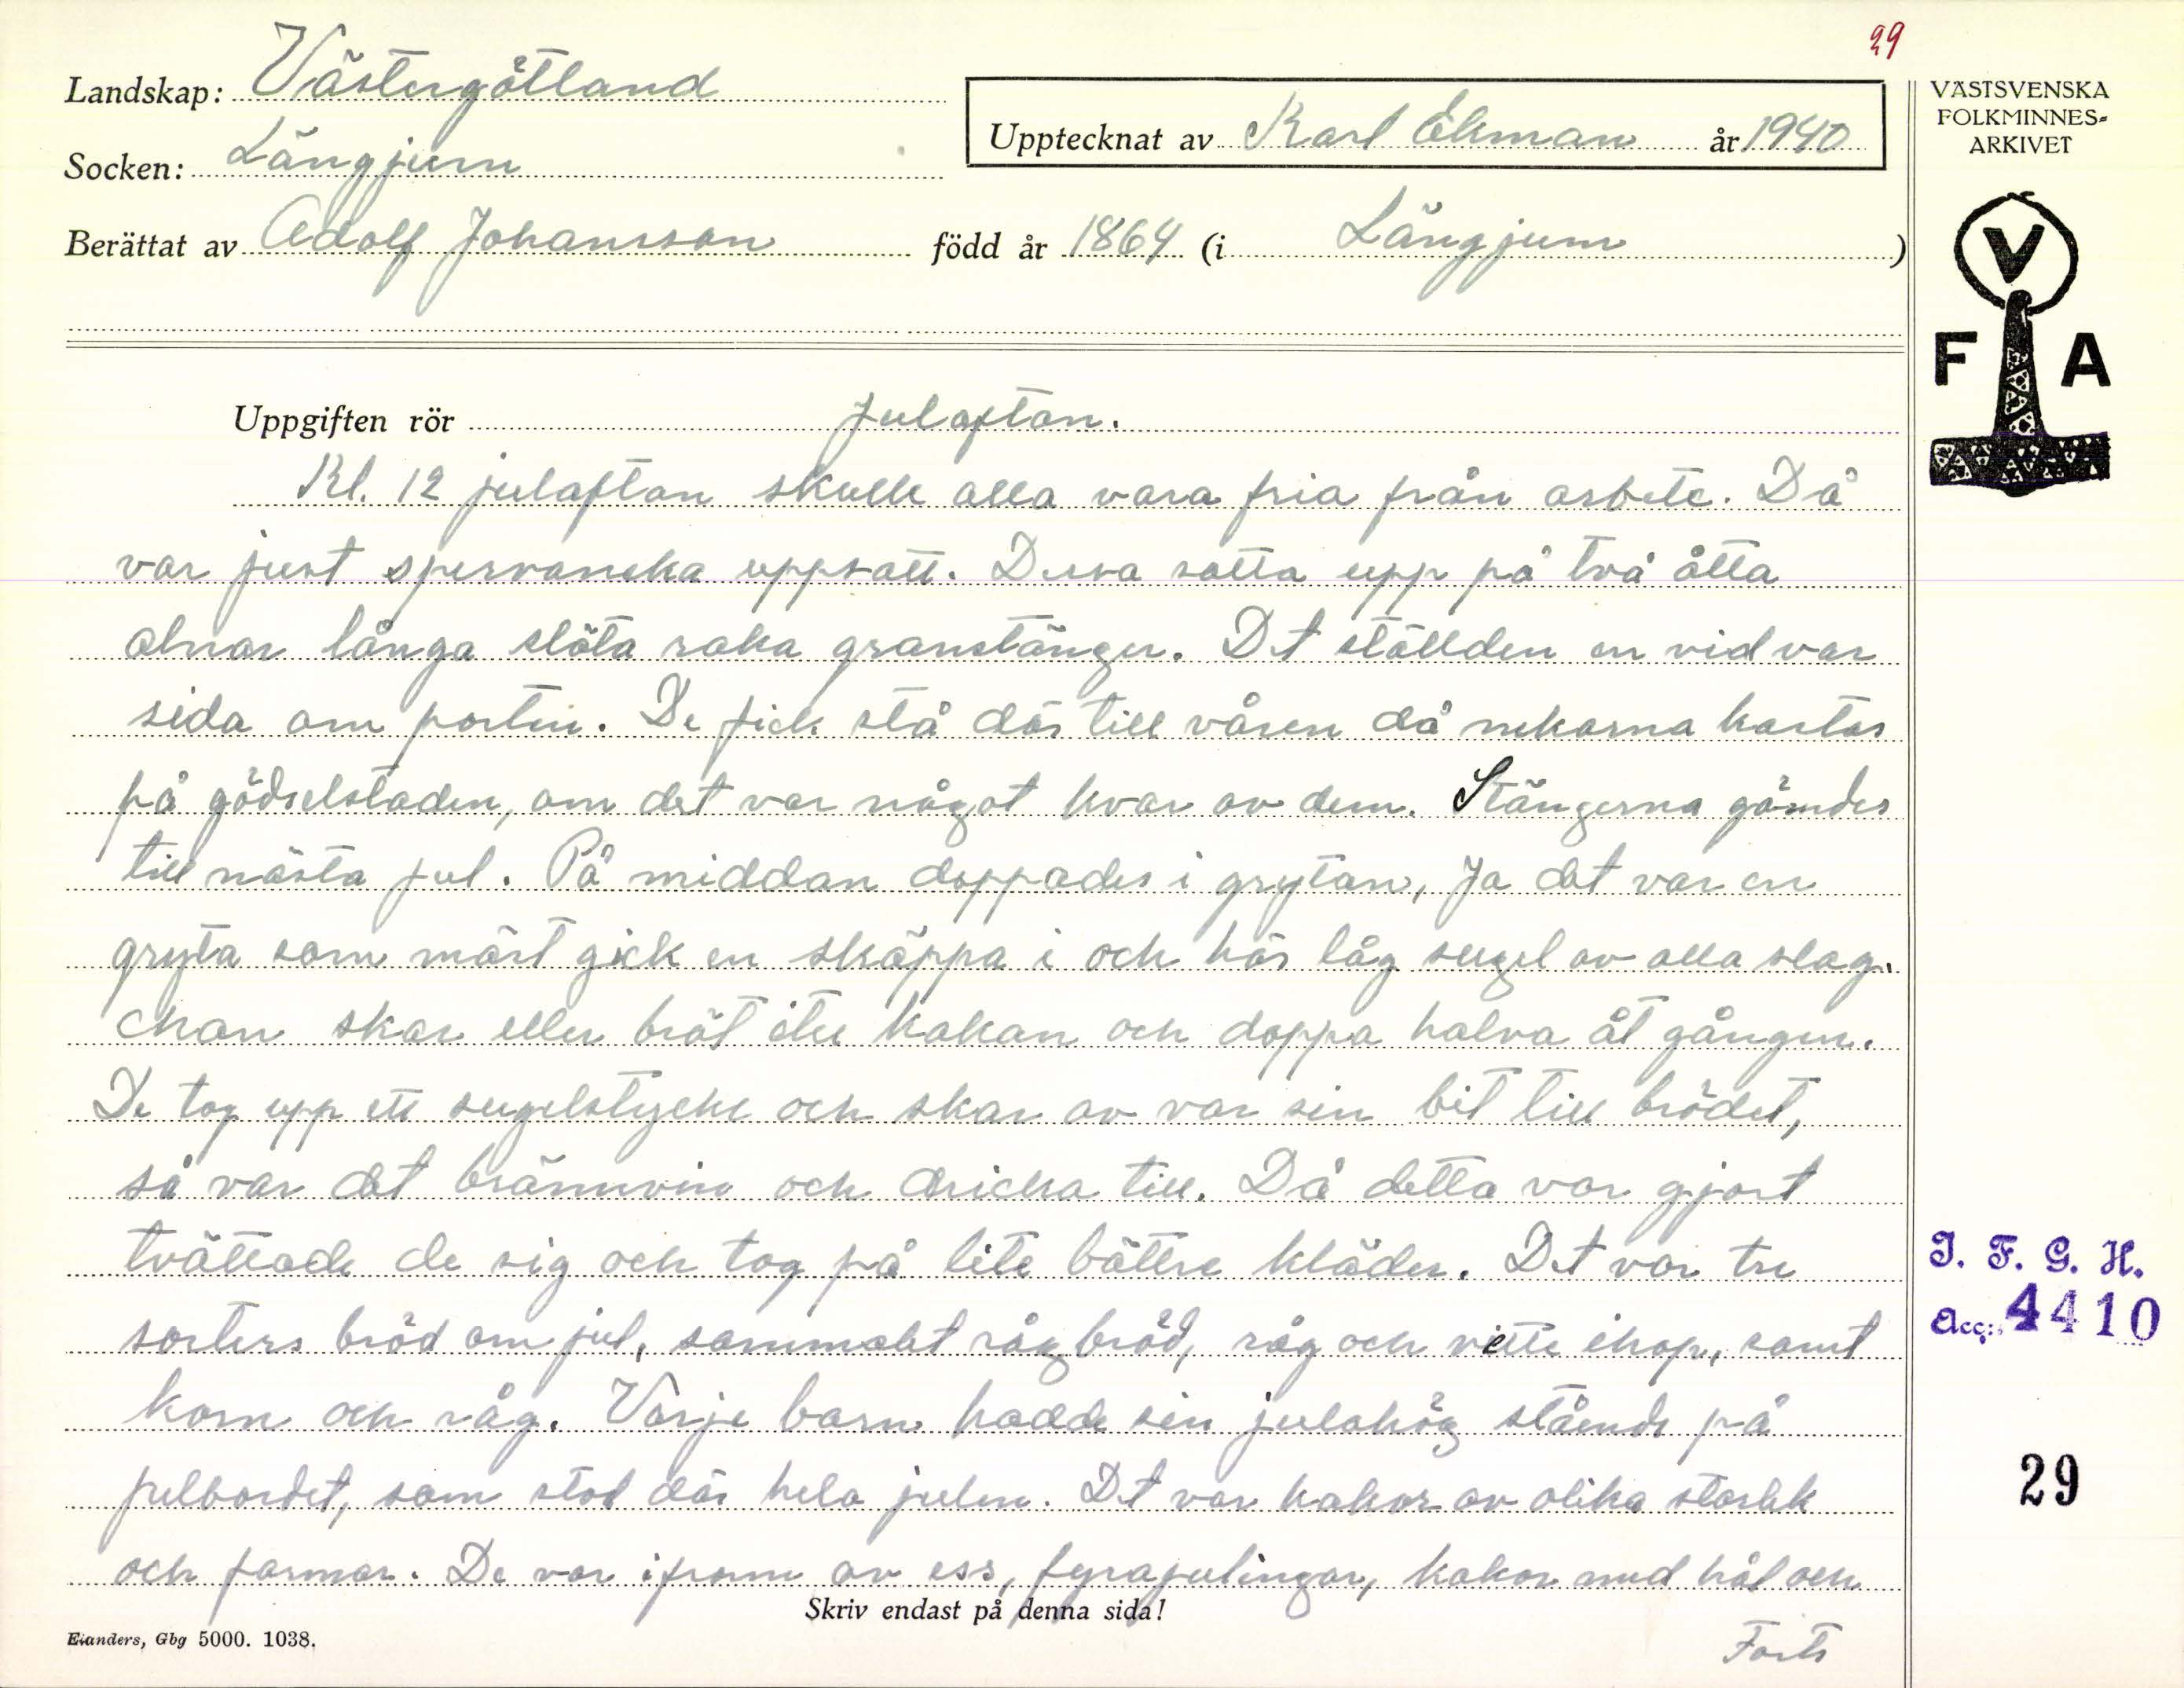 29
Landskap: Västergötland
Socken: Längjum
Upptecknat av Karl Ekman år 1940
Berättat av Adolf Johansson född år 1864 (i Längjum )
VÄSTSVENSKA
FOLKMINNES-
ARKIVET
V
F A
Uppgiften rör Julaftan.
Kl. 12 julaftan skulle alla vara fria från arbete. Då
var just uppsatt. Dessa satta upp på två åtta
alnar långa släta raka granstänger. Det ställden en vid var
sida om porten. De fick stå där till våren då nekarna kastas
på gödselstaden, om det var något kvar av dem. Stängerna gömdes
till nästa jul. På middan doppades i grytan, Ja det var en
gryta som mäst gick en skäppa i och här låg sugel av alla slag.
Man skar eller bröt itu kakan och doppa halva åt gången.
De tog upp ett sugelstycke och skar av var sin bit till brödet,
så var det brännvin och dricka till. Då detta var gjort
tvättade de sig och tog på lite bättre kläder. Det var tre
sorters bröd om jul, sammalet rågbröd, råg och vette ihop, samt
korn och råg. Varje barn hadde sin julahög stående på
julbordet, som stod där hela julen. Det var kakor av olika storlek
och formar. De var i form av ess, fyrajulingar, kakor med hål och
Forts
Skriv endast på denna sida!
Elanders, Gbg 5000. 1038.
I. F. G. H.
Acc: 4410
29